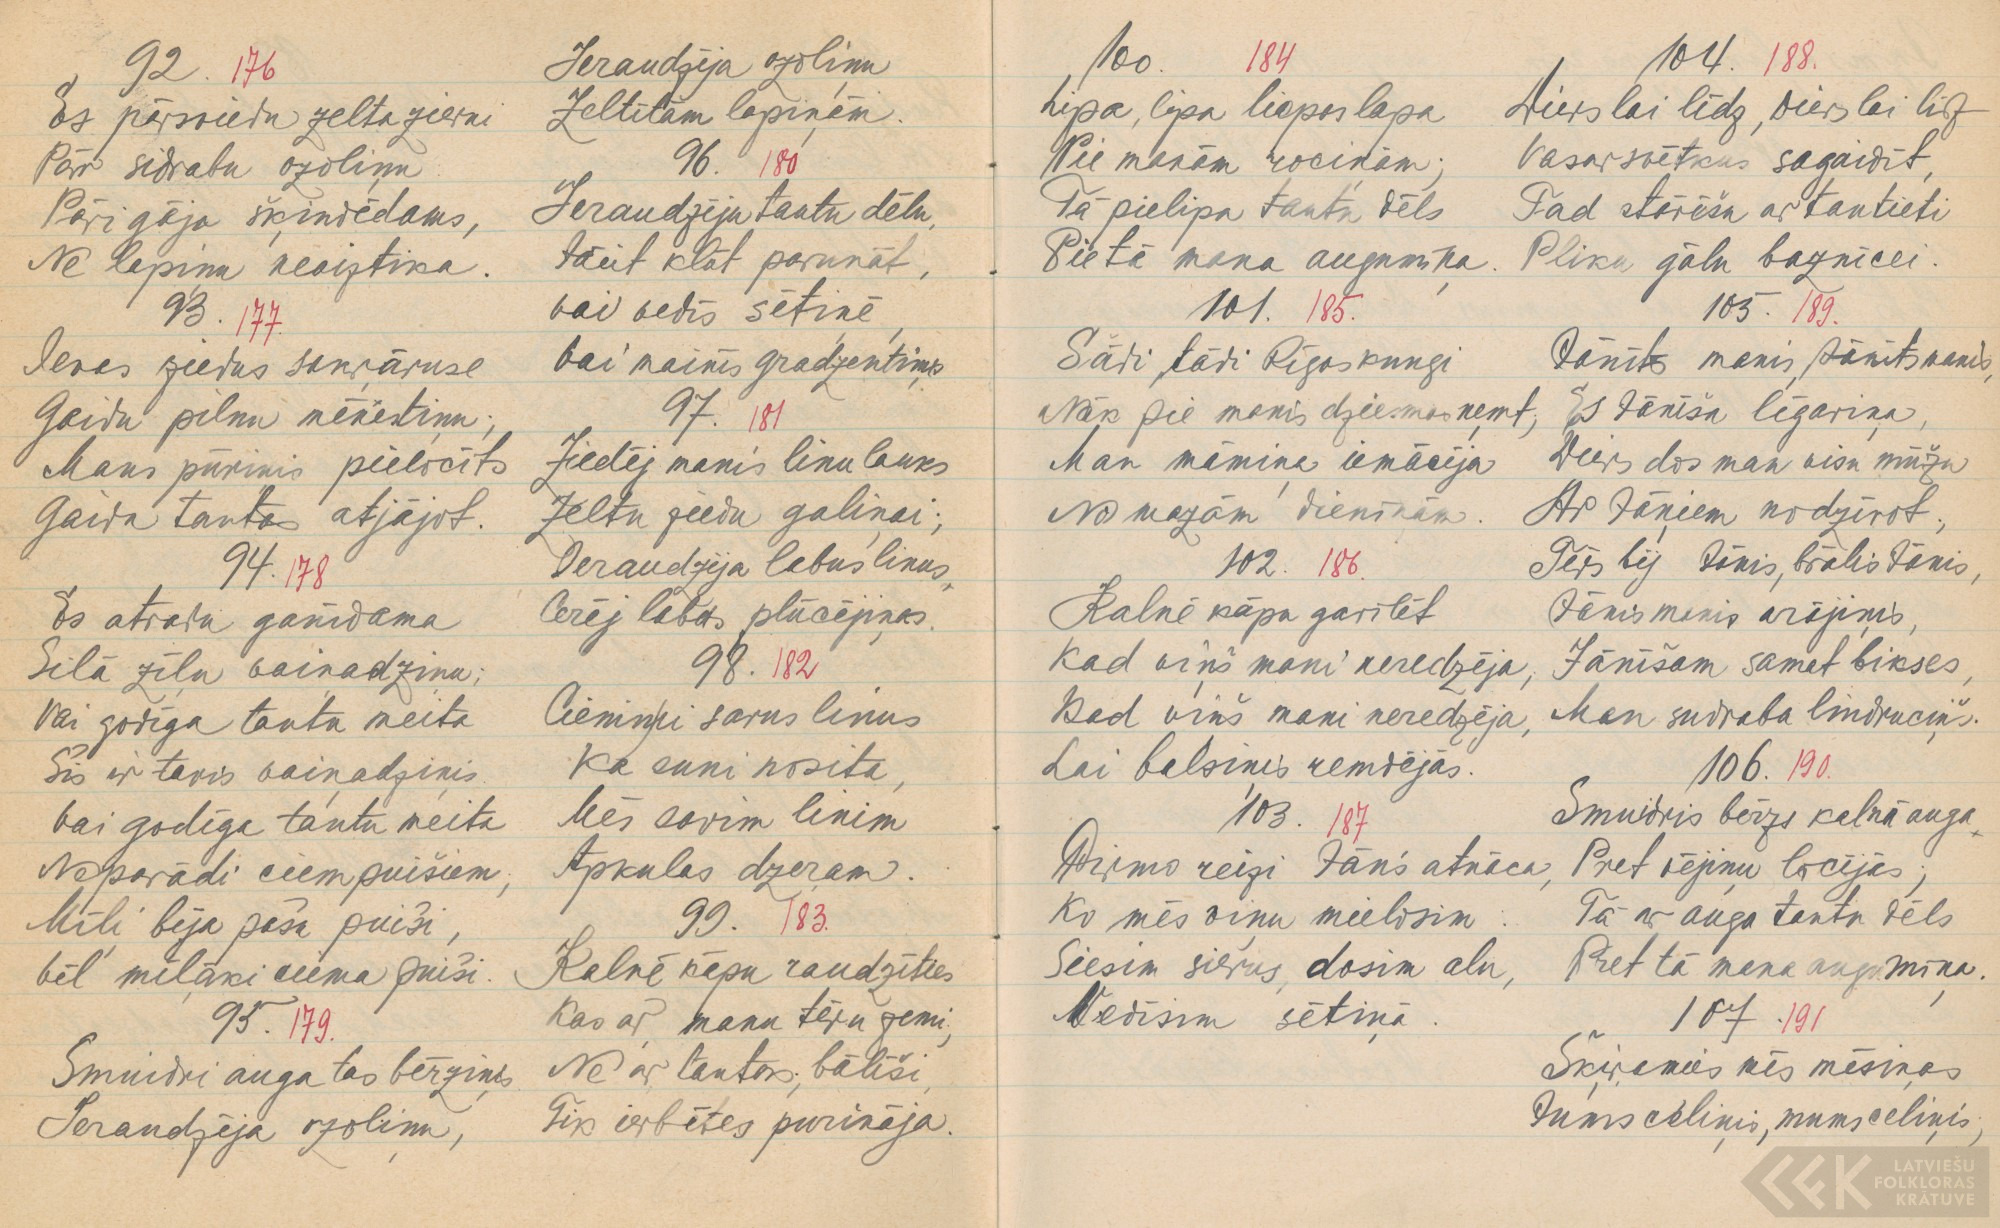 92. 176
Es pārsviedu zelta zierni
Pār sidrabu ozoliņu
Pāri gāja šķindēdams,
Ne lapiņu neaiztika.
93. 177.
Ievas ziedus sakrāruse
Gaidu pilnu mēnestiņu;
Mans pūrinis pielocīts
Gaidu tautas atjājot.
94. 178
Es atradu ganīdama
Silā zīļu vaiņadziņu;
Vai godīga tautu meita
Šis ir tavis vaiņadziņis
Vai godīga tautu meita
Neparādi ciempuišiem;
Mīļi bija pāša puiši,
Vēl mīļāki ciema puiši.
95. 179.
Smuidri auga tas bērziņis
Ieraudzēja ozoliņu,
Ieraudzēja ozoliņu
Zeltītām lapiņām.
96. 180
Ieraudzēju tautu dēlu,
Jāiit klāt parunāt,
vai vedīs sētiņē,
vai mainīs gradzentiņis
97. 181
Ziedēj manis linu lauks
Zeltu ziedu galiņai;
Ieraudzēja labus linus,
Cerēj labas plūcējiņas.
98. 182
Ciemiņi savus linus
Ka suni nosita,
Mēs savim linim
Apkulas dzeram.
99. 183.
Kalnē kāpu raudzīties
Kas ar manu tēru zemi;
Ne ar tautas, bālīši,
Tik ierbītes purināja.
100. 184
Lipa, lipa liepas lapa
Pie manām rociņām;
Tā pielipa tautu dēls
Pie tā mana augumiņa.
101. 185.
Sādi, tādi Rīgas kungi
Nāk pie manis dziesmas ņemt;
Man māmiņa iemācija
No mazām dieniņām.
102. 186.
Kalnē kāpu gavilēt
Kad viņš mani neredzēja,
Kad viņš mani neredzēja,
Lai balsiņis remdējās.
103. 187
Pirmo reizi Jānis atnāca,
Ko mēs viņu mielosim
Siesim sierus, dosim alu,
Vedīsim sētiņā.
104. 188.
Dievs lai līdz, Dievs lai līdz
Vasarsvētkus sagaidīt,
Tad stāvēšu ar tautieti
Pliku gālu baznīcei.
105. 189.
Jānīts manis, Jānīts manis,
Es Jānīša līgaviņa,
Dievs dos man visu mūžu
Ar Jāņiem nodzīvot;
Tēvs bij Jānis, brālis Jānis,
Jānis manis arājiņis,
Jānīšam samet bikses,
Man sudraba lindruciņš.
106. 190.
Smuidris bērzs kalnā auga,
Pret vējiņu locījās;
Tā ar auga tautu dēls
Pret tā mana augumiņa.
107. 191
Šķiramies mēs māsiņas
Jums celiņis, mums celiņis;
LATVIEŠU
FOLKLORAS
KRĀTUVE